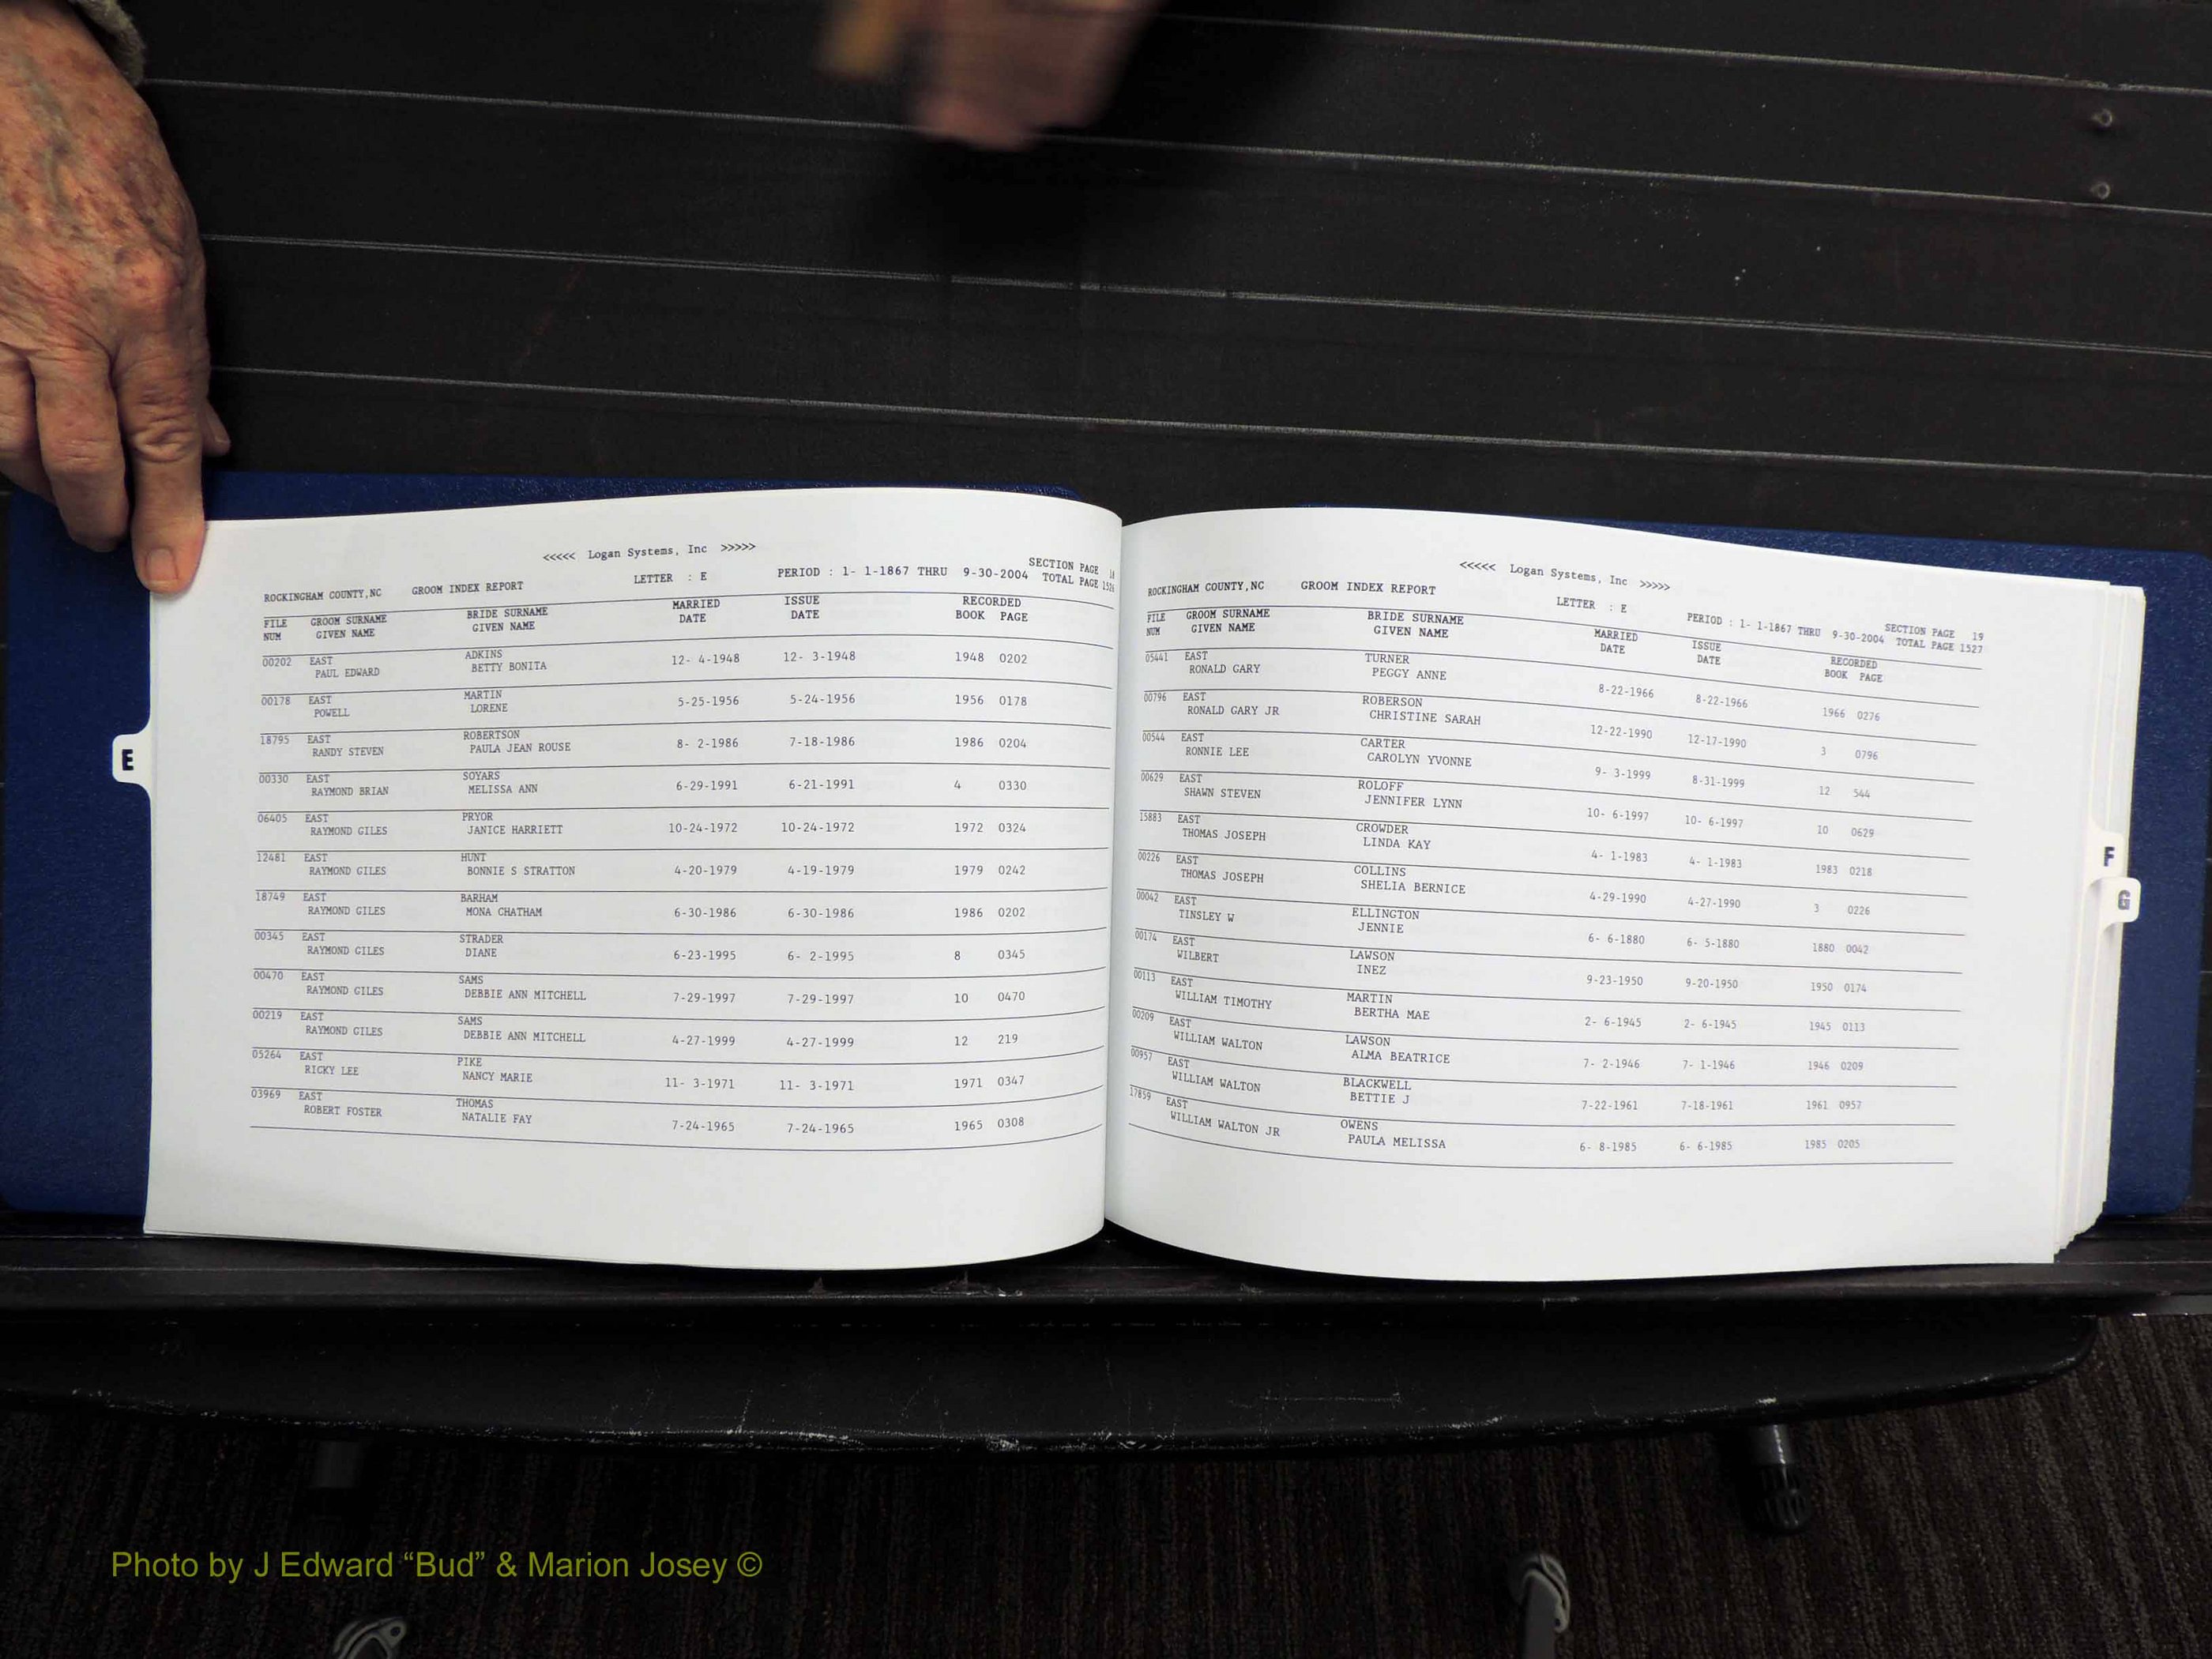 <<<<< Logan Systems, Inc >>>>>
SECTION PAGE 18
ROCKINGHAM COUNTY,NC GROOM INDEX REPORT LETTER : E PERIOD : 1- 1-1867 THRU 9-30-2004 TOTAL PAGE 1526
FILE GROOM SURNAME BRIDE SURNAME MARRIED ISSUE RECORDED
NUM GIVEN NAME GIVEN NAME DATE DATE BOOK PAGE
00202 EAST ADKINS
PAUL EDWARD BETTY BONITA 12- 4-1948 12- 3-1948 1948 0202
00178 EAST MARTIN
POWELL LORENE 5-25-1956 5-24-1956 1956 0178
18795 EAST ROBERTSON
RANDY STEVEN PAULA JEAN ROUSE 8- 2-1986 7-18-1986 1986 0204
00330 EAST SOYARS
RAYMOND BRIAN MELISSA ANN 6-29-1991 6-21-1991 4 0330
06405 EAST PRYOR
RAYMOND GILES JANICE HARRIETT 10-24-1972 10-24-1972 1972 0324
12481 EAST HUNT
RAYMOND GILES BONNIE S STRATTON 4-20-1979 4-19-1979 1979 0242
18749 EAST BARHAM
RAYMOND GILES MONA CHATHAM 6-30-1986 6-30-1986 1986 0202
00345 EAST STRADER
RAYMOND GILES DIANE 6-23-1995 6- 2-1995 8 0345
00470 EAST SAMS
RAYMOND GILES DEBBIE ANN MITCHELL 7-29-1997 7-29-1997 10 0470
00219 EAST SAMS
RAYMOND GILES DEBBIE ANN MITCHELL 4-27-1999 4-27-1999 12 219
05264 EAST PIKE
RICKY LEE NANCY MARIE 11- 3-1971 11- 3-1971 1971 0347
03969 EAST THOMAS
ROBERT FOSTER NATALIE FAY 7-24-1965 7-24-1965 1965 0308
E
<<<<< Logan Systems, Inc >>>>>
SECTION PAGE 19
ROCKINGHAM COUNTY,NC GROOM INDEX REPORT LETTER : E PERIOD : 1- 1-1867 THRU 9-30-2004 TOTAL PAGE 1527
FILE GROOM SURNAME BRIDE SURNAME MARRIED ISSUE RECORDED
NUM GIVEN NAME GIVEN NAME DATE DATE BOOK PAGE
05441 EAST TURNER
RONALD GARY PEGGY ANNE 8-22-1966 8-22-1966 1966 0276
00796 EAST ROBERSON
RONALD GARY JR CHRISTINE SARAH 12-22-1990 12-17-1990 3 0796
00544 EAST CARTER
RONNIE LEE CAROLYN YVONNE 9- 3-1999 8-31-1999 12 544
00629 EAST ROLOFF
SHAWN STEVEN JENNIFER LYNN 10- 6-1997 10- 6-1997 10 0629
15883 EAST CROWDER
THOMAS JOSEPH LINDA KAY 4- 1-1983 4- 1-1983 1983 0218
00226 EAST COLLINS
THOMAS JOSEPH SHELIA BERNICE 4-29-1990 4-27-1990 3 0226
00042 EAST ELLINGTON
TINSLEY W JENNIE 6- 6-1880 6- 5-1880 1880 0042
00174 EAST LAWSON
WILBERT INEZ 9-23-1950 9-20-1950 1950 0174
00113 EAST MARTIN
WILLIAM TIMOTHY BERTHA MAE 2- 6-1945 2- 6-1945 1945 0113
00209 EAST LAWSON
WILLIAM WALTON ALMA BEATRICE 7- 2-1946 7- 1-1946 1946 0209
00957 EAST BLACKWELL
WILLIAM WALTON BETTIE J 7-22-1961 7-18-1961 1961 0957
17859 EAST OWENS
WILLIAM WALTON JR PAULA MELISSA 6- 8-1985 6- 6-1985 1985 0205
F
G
Photo by J Edward “Bud” & Marion Josey ©